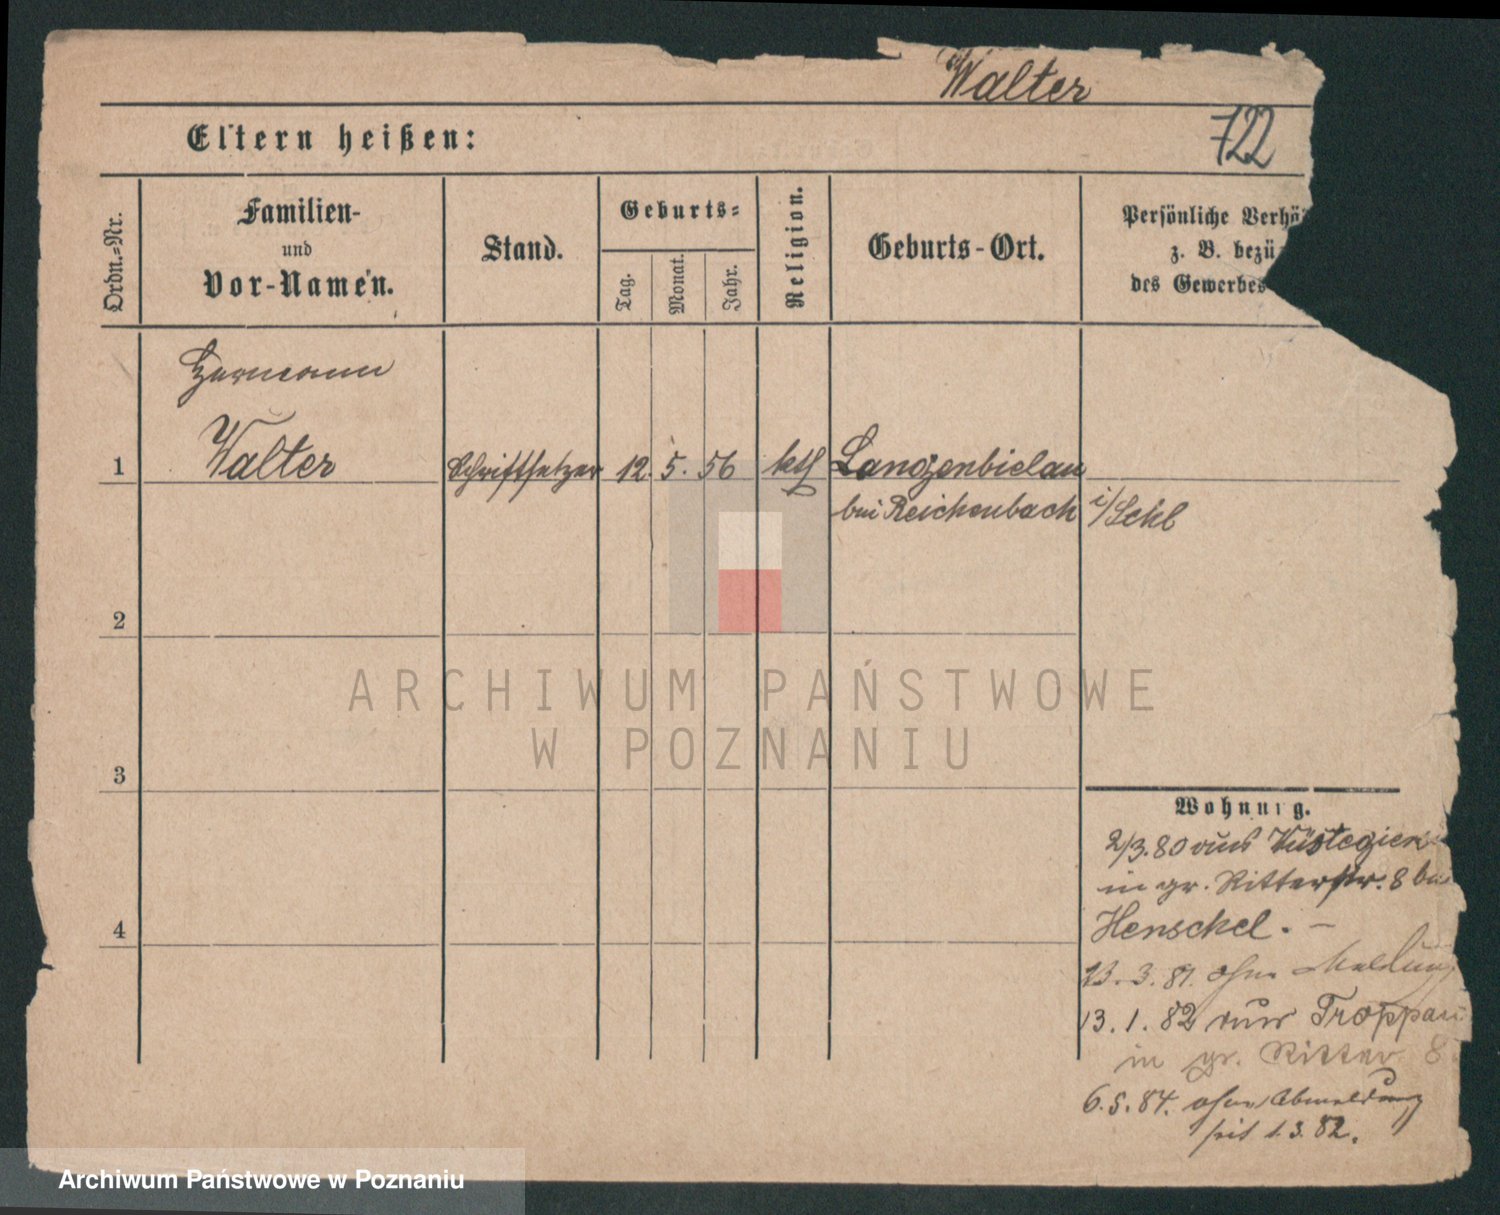 Walter
722
Eltern heißen:
Ordn.-Nr.
Familien-
und
Vor-Namen.
Stand.
Geburts-
Tag.
Monat.
Jahr.
Religion.
Geburts-Ort.
Persönliche Verhä
z. B. bezü
des Gewerbes
Hermann
1 Walter Schriftsetzer 12. 5. 56 kath Langenbielau
bei Reichenbach i/Schl
2
3
4
Wohnung.
2/3.80 aus
in gr. Ritterstr. 8 bei
Henschel. –
23.3.81. ohne Meldung
13.1.82 aus Troppau
in gr. Ritter 8
6.5.84. ohne Abmeldung
seit 1.3.82.
ARCHIWUM PAŃSTWOWE
W POZNANIU
Archiwum Państwowe w Poznaniu